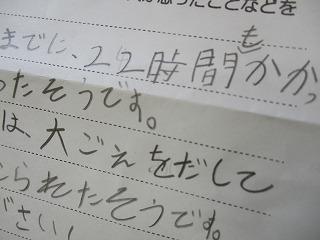 思ったことなどを
までに、22時間もかかっ
ったそうです。
は、大ごえをだして
られたそうです。
ださい